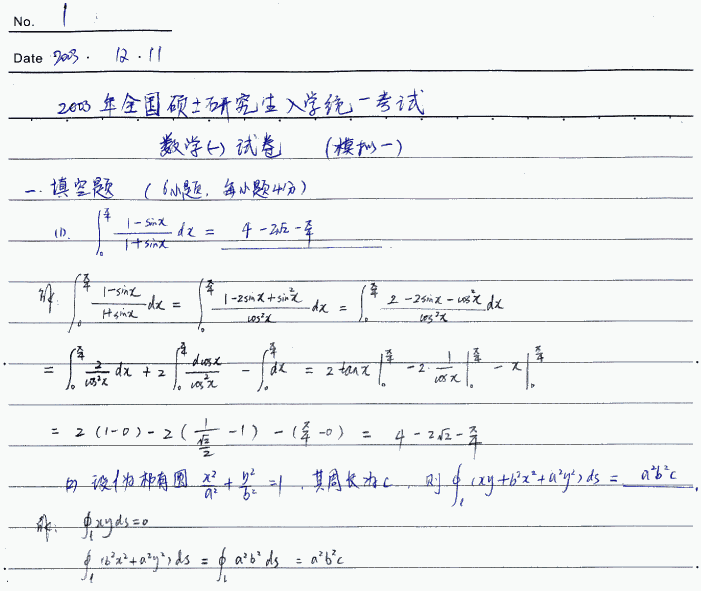 No. 1
Date 2003. 12. 11
2003 年全国硕士研究生入学统一考试
数学(一) 试卷 (模拟一)
一. 填空题 (6小题, 每小题4分)
(1). ∫₀^{π/4} (1-sinx)/(1+sinx) dx = 4-2√2-π/4
解: ∫₀^{π/4} (1-sinx)/(1+sinx) dx = ∫₀^{π/4} (1-2sinx+sin²x)/(cos²x) dx = ∫₀^{π/4} (2-2sinx-cos²x)/(cos²x) dx
= ∫₀^{π/4} 2/(cos²x) dx + 2∫₀^{π/4} dcosx/(cos²x) - ∫₀^{π/4} dx = 2tanx|₀^{π/4} - 2·1/(cosx)|₀^{π/4} - x|₀^{π/4}
= 2(1-0) - 2(1/(√2/2) - 1) - (π/4-0) = 4-2√2-π/4
(2) 设l为椭圆 x²/a² + y²/b² = 1, 其周长为c, 则 ∮_l (xy+b²x²+a²y²)ds = a²b²c.
解: ∮_l xyds=0
∮_l (b²x²+a²y²)ds = ∮_l a²b²ds = a²b²c